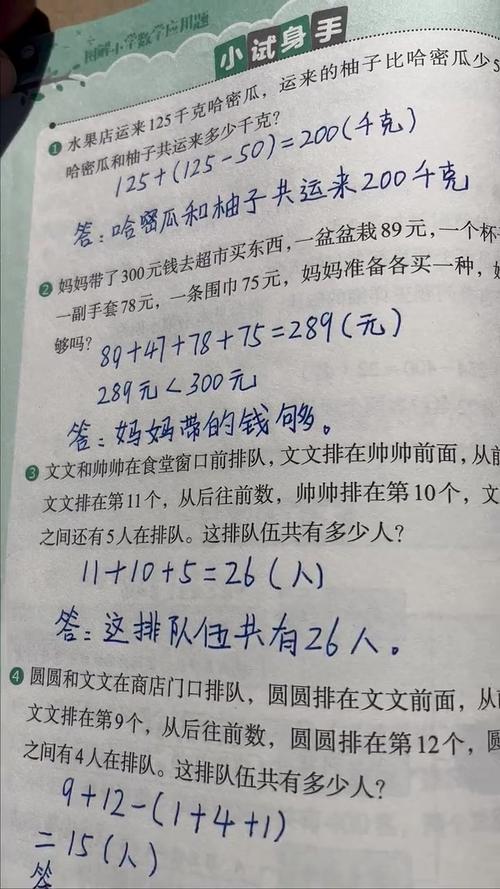 图解小学数学应用题
小试身手
1 水果店运来125千克哈密瓜，运来的柚子比哈密瓜少5
哈密瓜和柚子共运来多少千克？
125+(125-50)=200(千克)
答：哈密瓜和柚子共运来200千克
2 妈妈带了300元钱去超市买东西，一盆盆栽89元，一个杯
一副手套78元，一条围巾75元，妈妈准备各买一种，
够吗？
89+47+78+75=289(元)
289元<300元
答：妈妈带的钱够。
3 文文和帅帅在食堂窗口前排队，文文排在帅帅前面，从前
文文排在第11个，从后往前数，帅帅排在第10个，文
之间还有5人在排队。这排队伍共有多少人？
11+10+5=26(人)
答：这排队伍共有26人。
4 圆圆和文文在商店门口排队，圆圆排在文文前面，从前
文文排在第9个，从后往前数，圆圆排在第12个，圆
之间有4人在排队。这排队伍共有多少人？
9+12-(1+4+1)
=15(人)
答